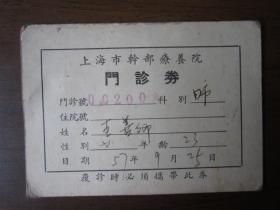 上海市幹部療養院
門診券
門診號 002003 科別
住院號
姓名 王善卿
性別 年齡 23
日期 57年9月25日
複診時必須攜帶此券